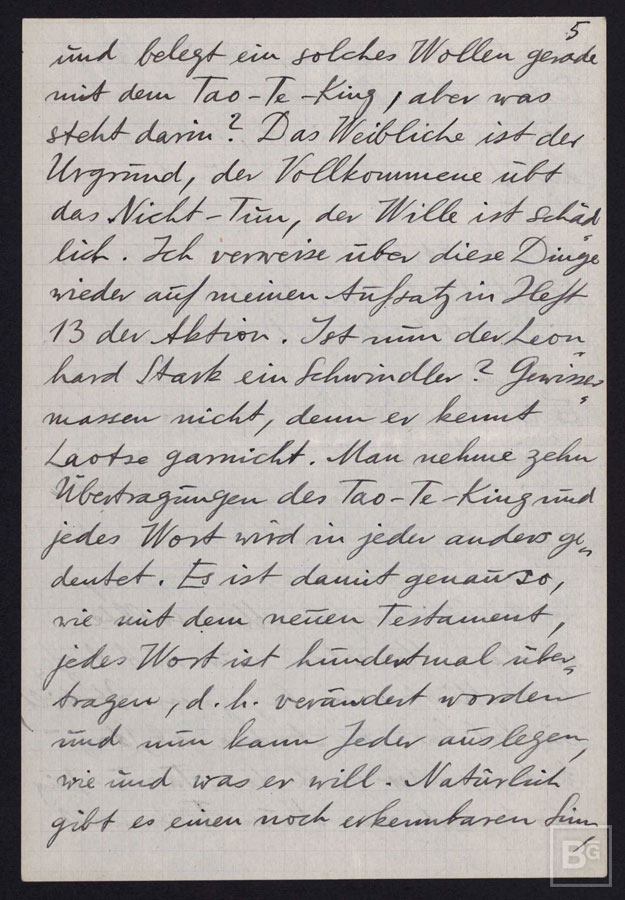 5
und belegt ein solches Wollen gerade
mit dem Tao-Te-King, aber was
steht darin? Das Weibliche ist der
Urgrund, der Vollkommene übt
das Nicht-Tun, der Wille ist schäd=
lich. Ich verweise über diese Dinge
wieder auf meinen Aufsatz in Heft
13 der Aktion. Ist nun der Leon=
hard Stark ein Schwindler? Gewisser=
massen nicht, denn er kennt
Laotse garnicht. Man nehme zehn
Übertragungen des Tao-Te-King und
jedes Wort wird in jeder anders ge=
deutet. Es ist damit genau so,
wie mit dem neuen Testament,
jedes Wort ist hundertmal über=
tragen, d.h. verändert worden
und nun kann Jeder auslegen,
wie und was er will. Natürlich
gibt es einen noch erkennbaren Sinn
BG